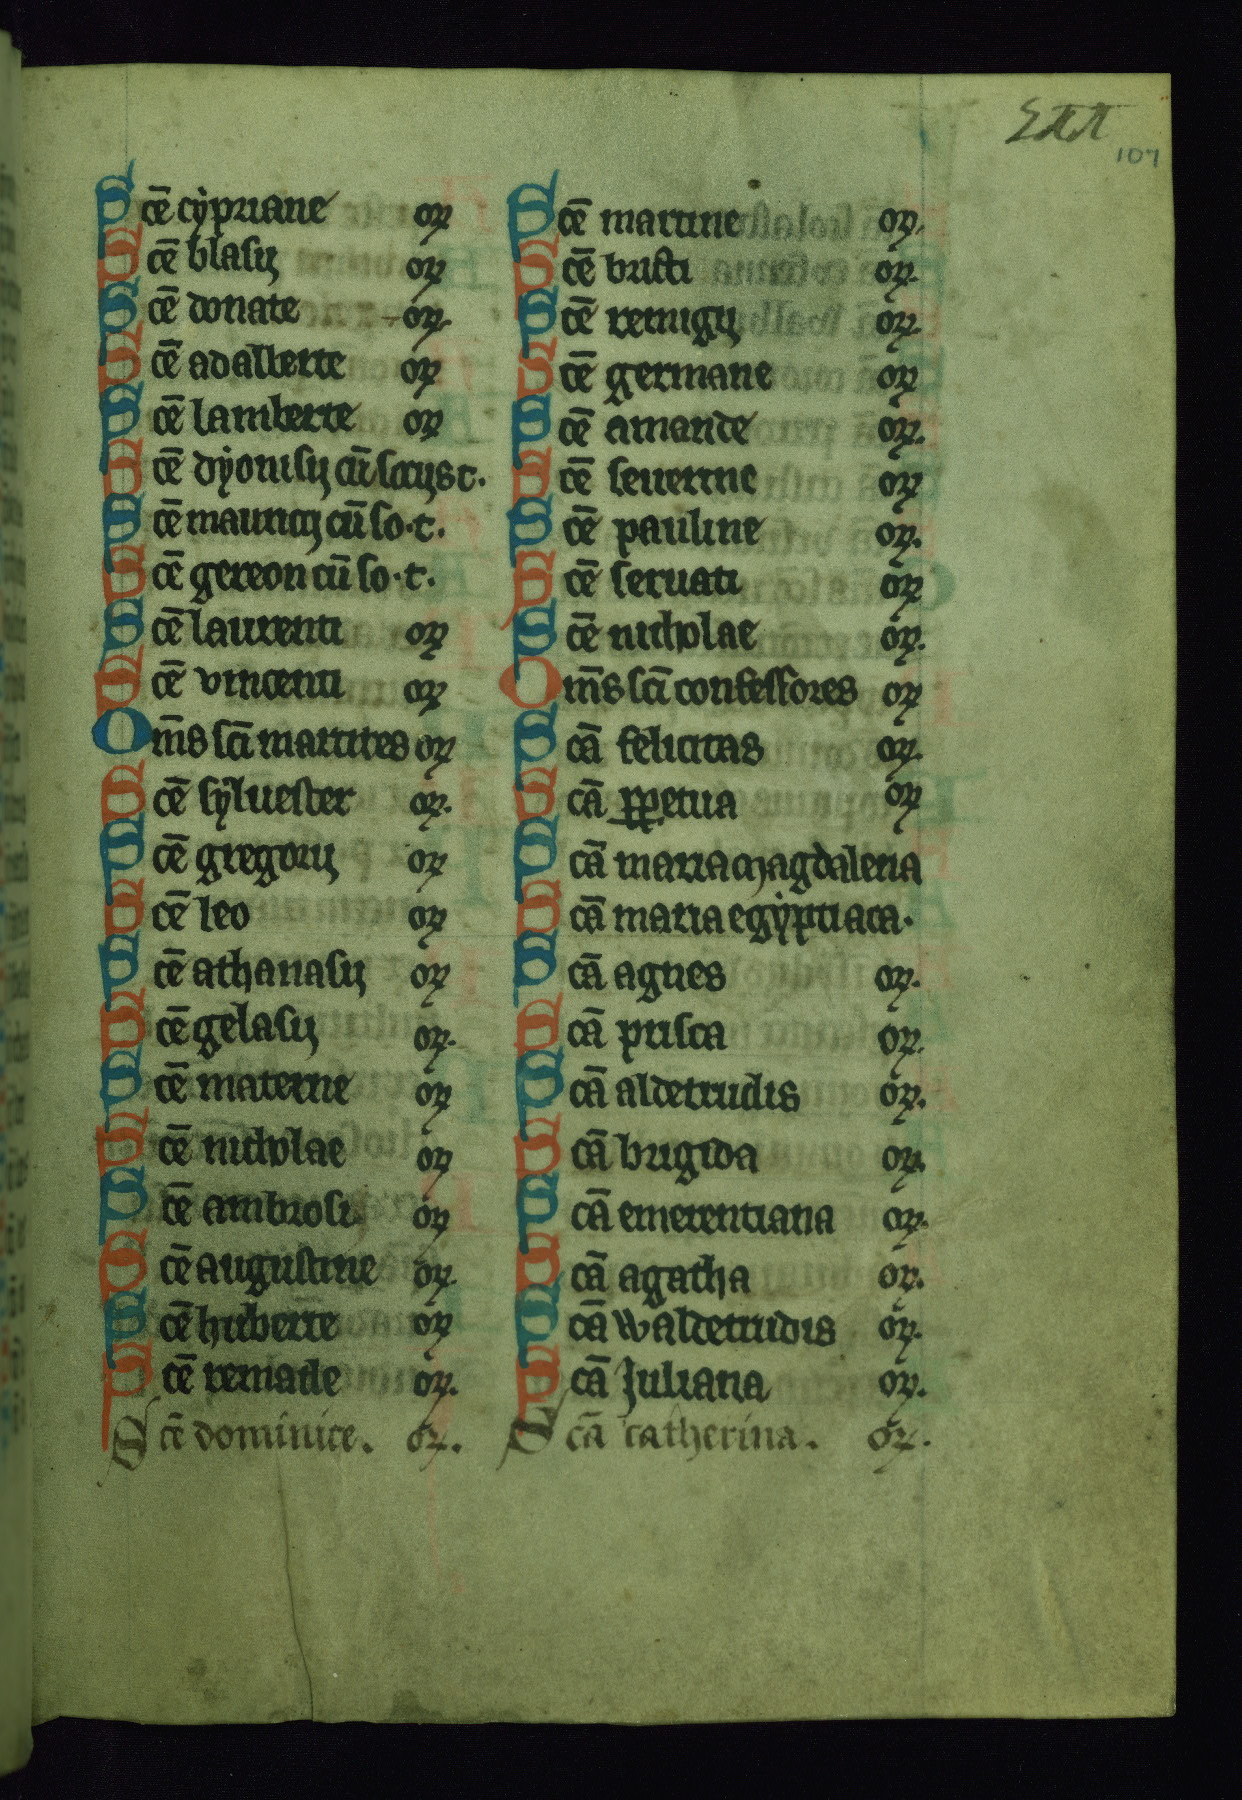 107
Scē cẏpriane or
Scē blasij or
Scē donate or.
Scē adalberte or
Scē lamberte or
Scē dẏonisij cū socijs t.
Scē mauricij cū so·t.
Scē gereon cū so·t.
Scē laurenti or
Scē vincenti or
Om̄s sc̄i martires or
Scē sẏluester or.
Scē gregorij or
Scē leo or
Scē athanasij or
Scē gelasij or.
Scē materne or
Scē nicholae or
Scē ambrosi. or
Scē augustine or.
Scē huberte or
Scē remacle or.
Scē dominice. or.
Scē martine or.
Scē bricti or.
Scē remigij or.
Scē germane or
Scē amande or.
Scē seuerine or
Scē pauline or.
Scē seruati or
Scē nicholae or.
Om̄s sc̄i confessores or
Scā felicitas or.
Scā ꝑpetua or
Scā maria magdalena
Scā maria egẏptiaca·
Scā agnes or.
Scā prisca or.
Scā aldetrudis or.
Scā brigida or.
Scā emerentiana or.
Scā agatha or.
Scā waldetrudis or.
Scā Juliana or.
Scā catherina. or.